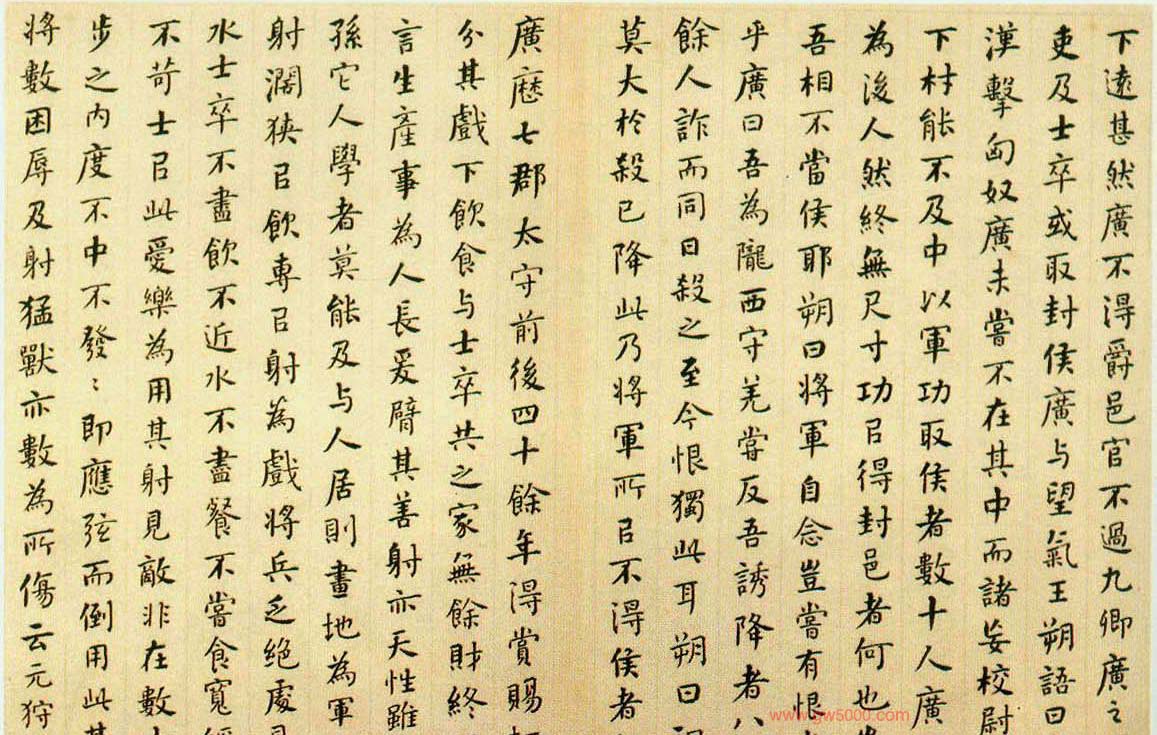 下遠甚然廣不得爵邑官不過九卿廣之
吏及士卒或取封侯廣与望氣王朔語曰
漢擊匈奴廣未嘗不在其中而諸妄校尉
下材能不及中以軍功取侯者數十人廣
為後人然終無尺寸功㠯得封邑者何也
吾相不當侯耶朔曰將軍自念豈嘗有恨
乎廣曰吾為隴西守羌嘗反吾誘降者八
餘人詐而同日殺之至今恨獨此耳朔曰
莫大於殺已降此乃將軍所㠯不得侯者
廣歷七郡太守前後四十餘年得賞賜
分其戲下飲食与士卒共之家無餘財終
言生產事為人長爰臂其善射亦天性雖
孫它人學者莫能及与人居則畫地為軍
射闊狹㠯飲專㠯射為戲將兵乏絕處見
水士卒不盡飲不近水不盡餐不嘗食寬
不苛士㠯此愛樂為用其射見敵非在數
步之內度不中不發〻即應弦而倒用此其
將數困辱及射猛獸亦數為所傷云元狩
www.gw5000.com